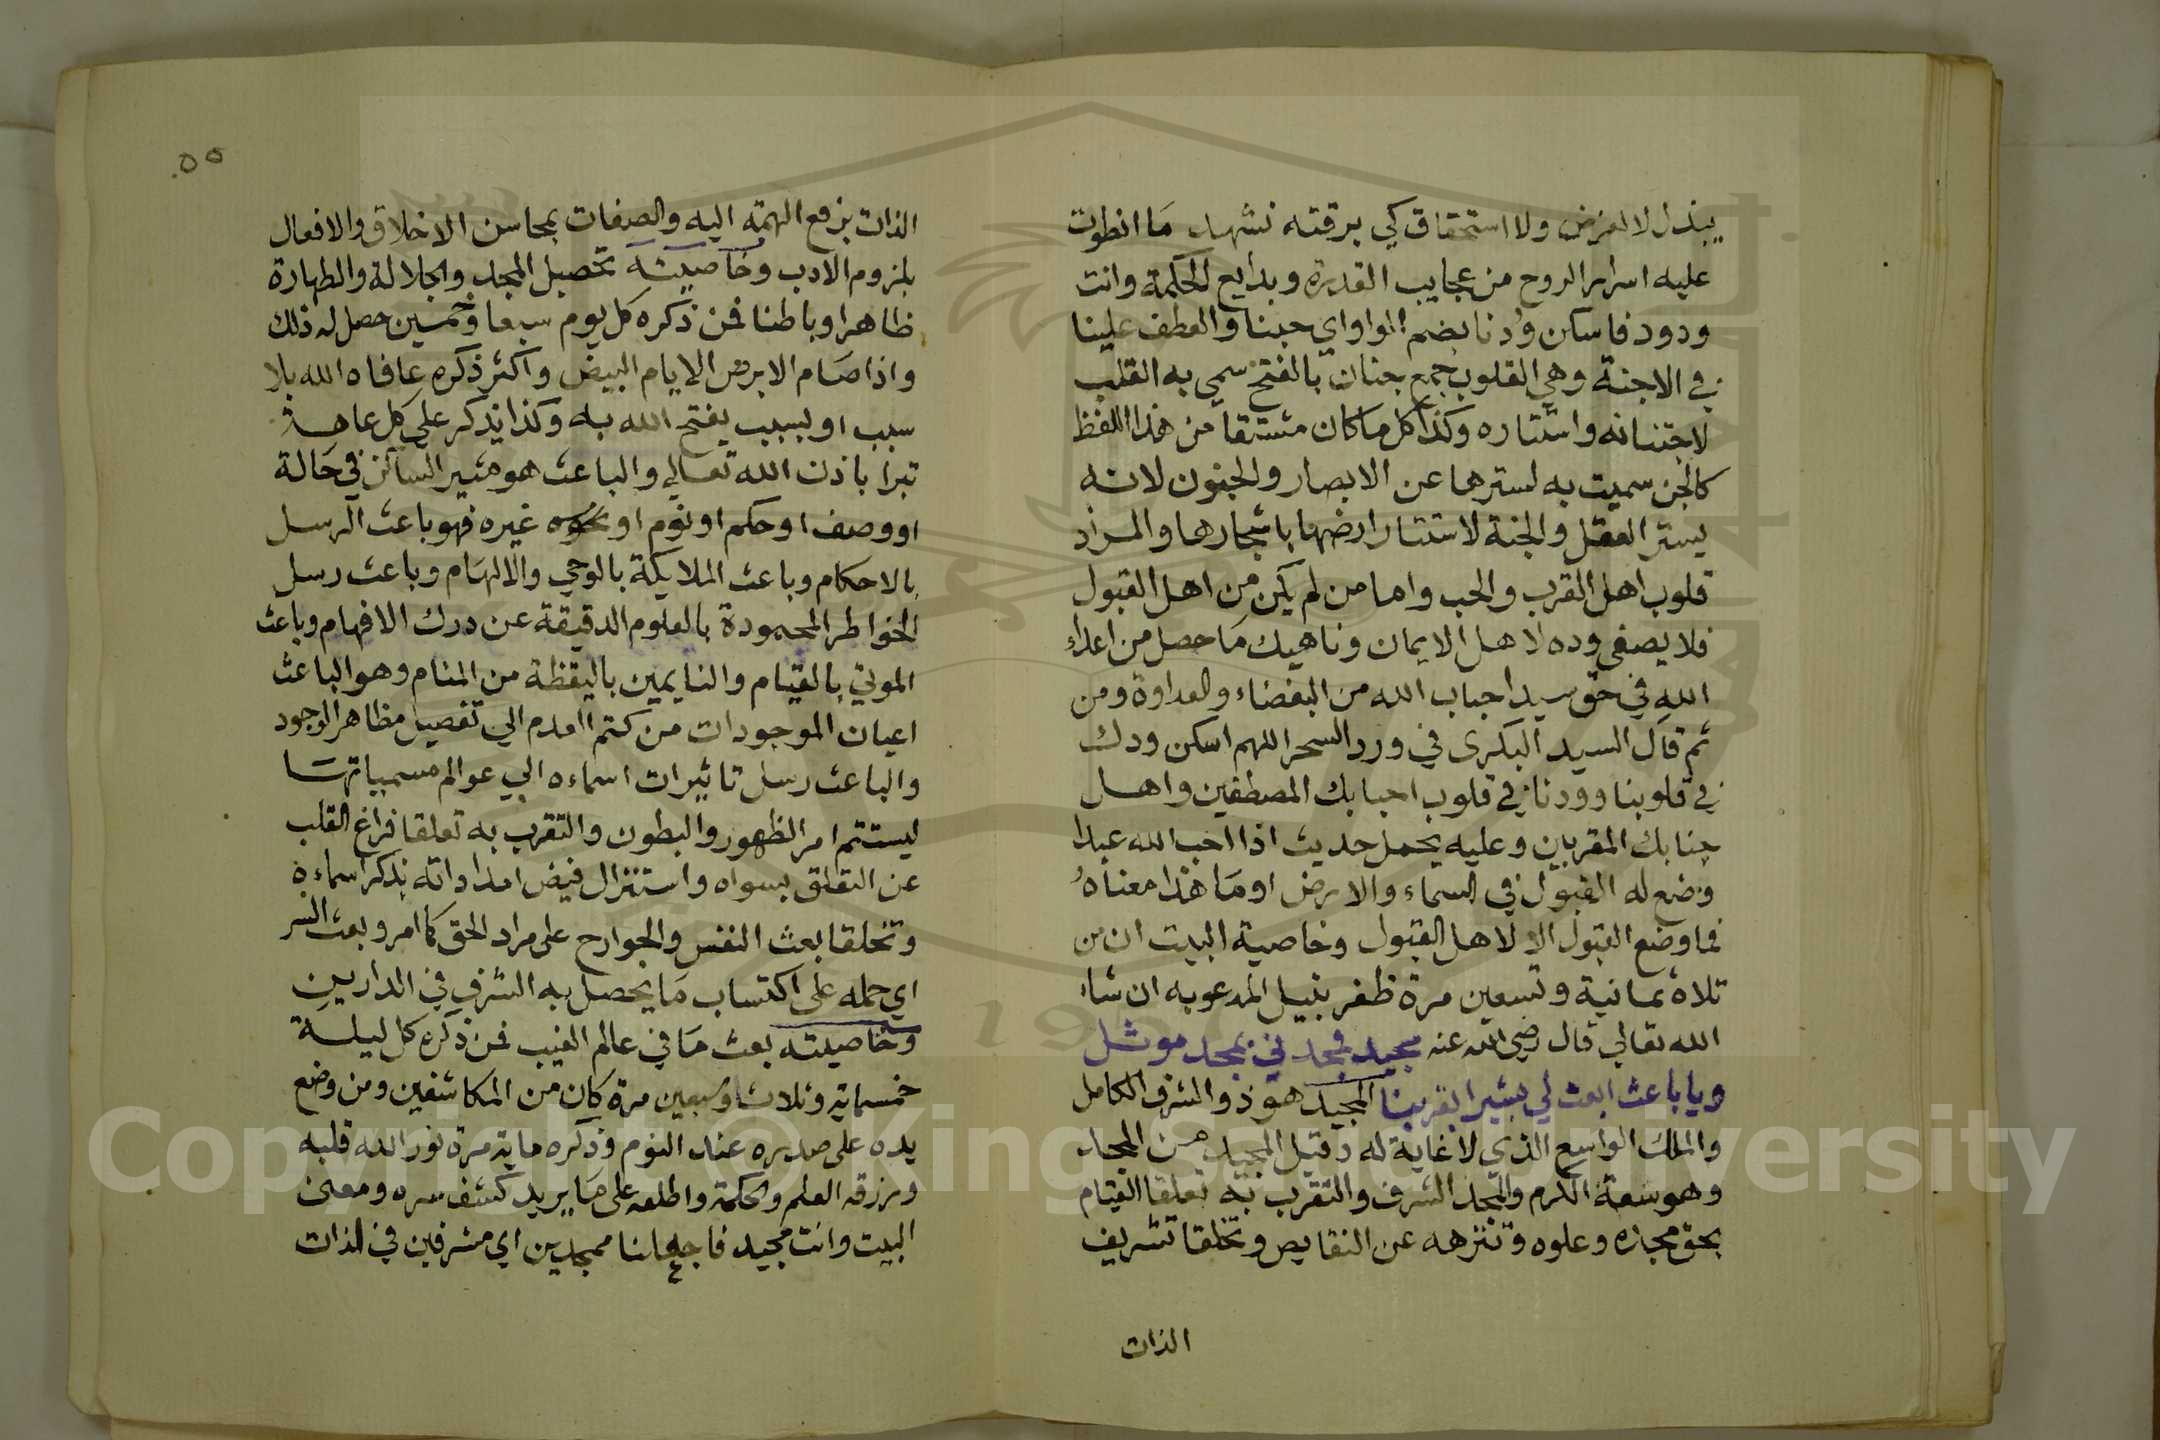 يبذل لا لغرض ولا استحقاق كي برقته نشهد ما انطوت
عليه اسرار الروح من عجايب القدرة وبدايع الحكمة وانت
ودود فاسكن وُدنا بضم الواو اي حبنا والعطف علينا
في الاجنة وهي القلوب جمع جنان بالفتح سمي به القلب
لاجتنانه واستتاره وكذا كل ما كان مشتقا من هذا اللفظ
كالجن سميت به لسترها عن الابصار والجنون لانه
يستر العقل والجنة لاستتار ارضها باشجارها والمراد
قلوب اهل القرب والحب واما من لم يكن من اهل القبول
فلا يصغي وده لاهل الايمان وناهيك ما حصل من اعداء
الله في حق سيد احباب الله من البغضاء والعداوة ومن
ثم قال السيد البكرى في ورد السحر اللهم اسكن ودك
في قلوبنا وودنا في قلوب احبابك المصطفين واهل
جنابك المقربين وعليه يحمل حديث اذا احب الله عبدا
وضع له القبول في السماء والارض او ما هذا معناهُ
فما وضع القبول الا لاهل القبول وخاصية البيت ان من
تلاه ثمانية وتسعين مرة ظفر بنيل المدعو به ان شاء
الله تعالي قال رضي الله عنه مجيد فمجد في بمجد موثل
ويا باعث ابعث لي بشيرا بقربنا المجيد هو ذو الشرف الكامل
والملك الواسع الذي لا غاية له وقيل المجيد من المجد
وهو سعة الكرم والمجد الشرف والتقرب به تعلقا القيام
بحق مجده وعلوه وتنزهه عن النقايص وتخلقا تشريف
الذات
٥٥
الذات برفع الهمة اليه والصفات بمحاسن الاخلاق والافعال
بلزوم الادب وخاصيته تحصيل المجد والجلالة والطهارة
ظاهرا وباطنا فمن ذكره كل يوم سبعا وخمسين حصل له ذلك
واذا صام الابرص الايام البيض واكثر ذكره عافاه الله بلا
سبب او بسبب يفتح الله به وكذا يذكر علي كل عاهة
تبرا باذن الله تعالي والباعث هو مثير الساكن في حالة
او وصف او حكم او نوم او نحوه غيره فهو باعث الرسل
بالاحكام وباعث الملايكة بالوحي والالهام وباعث رسل
الخواطر المحمودة بالعلوم الدقيقة عن درك الافهام وباعث
الموتي بالقيام والنايمين باليقظة من المنام وهو الباعث
اعيان الموجودات من كتم العدم الي تفصيل مظاهر الوجود
والباعث رسل تاثيرات اسماءه الي عوالم مسمياتها
ليستتم امر الظهور والبطون والتقرب به تعلقا فراغ القلب
عن التعلق بسواه واستنزال فيض امداداته بذكر اسماءه
وتخلقا بعث النفس والجوارح على مراد الحق كما امر وبعث السر
اي حمله على اكتساب ما يحصل به الشرف في الدارين
وخاصيته بعث ما في عالم الغيب فمن ذكره كل ليلة
خمسماية وثلاثا وسبعين مرة كان من المكاشفين ومن وضع
يده على صدره عند النوم وذكره ماية مرة نور الله قلبه
ورزقه العلم والحكمة واطلعه على ما يريد كشف سره ومعنى
البيت وانت مجيد فاجعلنا ممجدين اي مشرفين في الذات
Copyright © King Saud University
1957